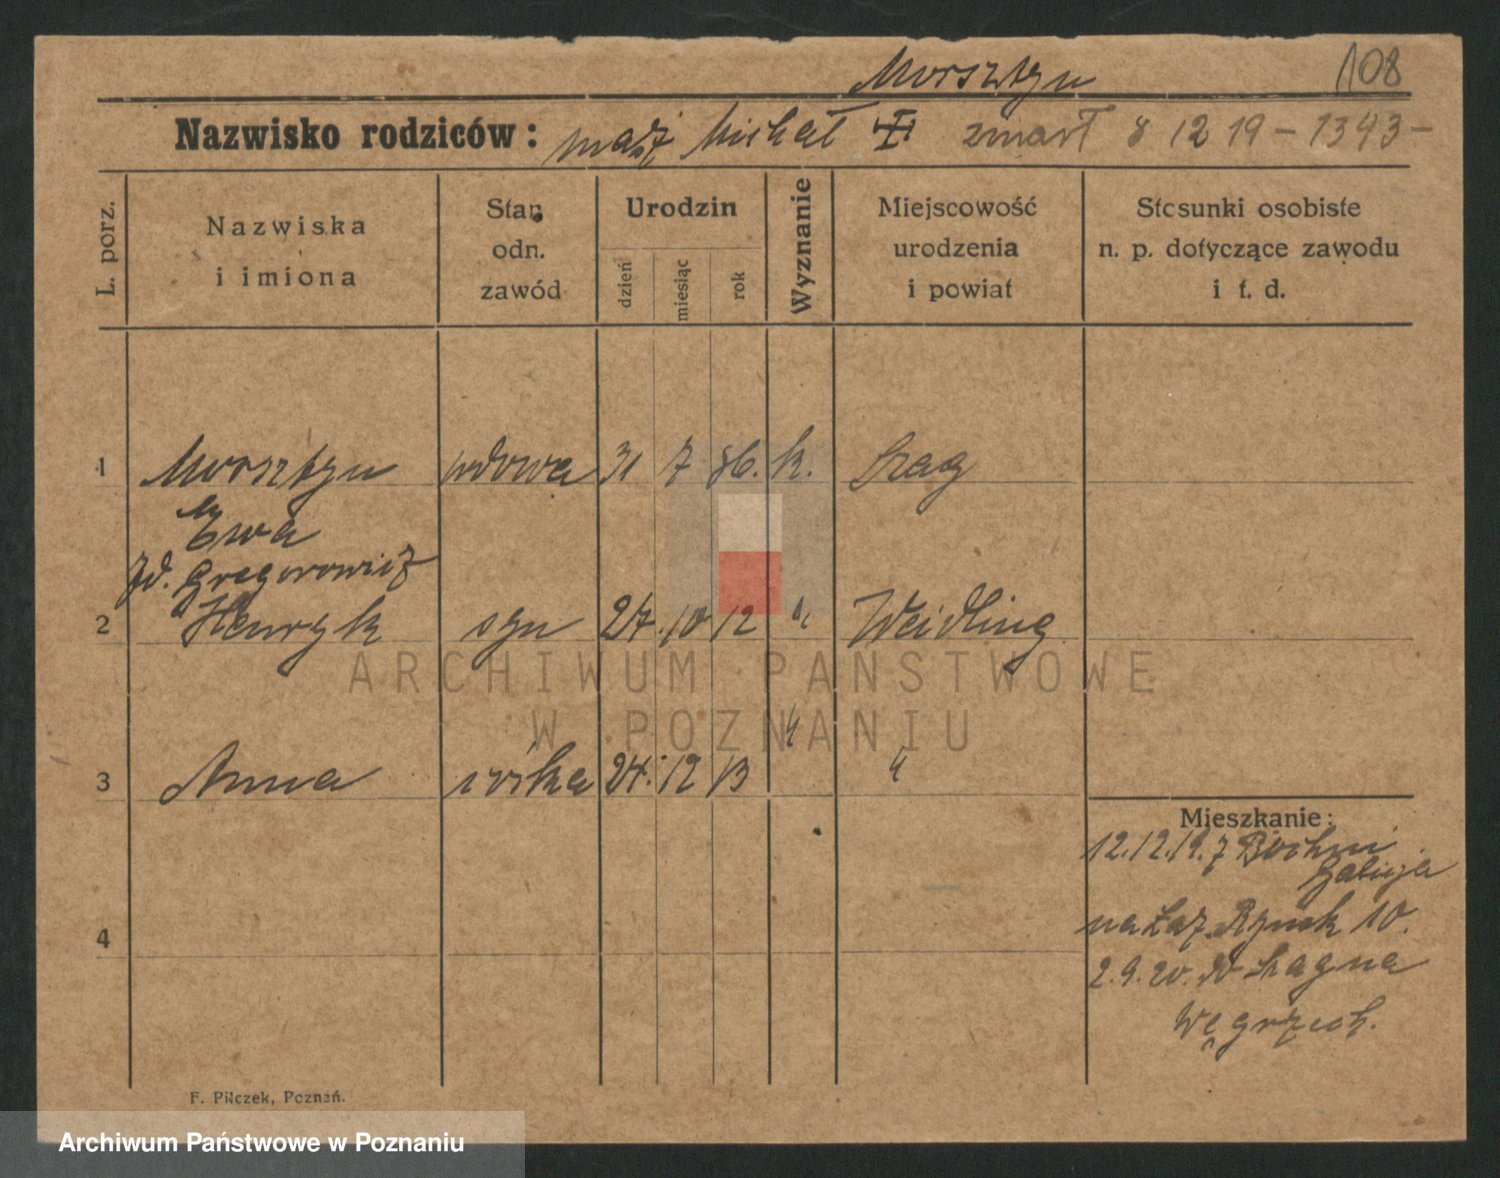 Morsztyn
108
Nazwisko rodziców: mąż Michał zmarł 8 12 19 – 1343 –
L. porz.
Nazwiska
i imiona
Stan
odn.
zawód
Urodzin
dzień
miesiąc
rok
Wyznanie
Miejscowość
urodzenia
i powiat
Stosunki osobiste
n. p. dotyczące zawodu
i t. d.
1 Morsztyn wdowa 31 7 86. k. Prag
Ewa
Gregorowicz
2 Henryk syn 27. 10 12 " Weidling
3 Anna córka 24. 12 13 " "
Mieszkanie:
12.12.19. z Bochni
Galicja
na Łaz. Rynek 10.
4
2.9.20. do
Węgrzech.
F. Pilczek, Poznań.
ARCHIWUM PAŃSTWOWE
W POZNANIU
Archiwum Państwowe w Poznaniu